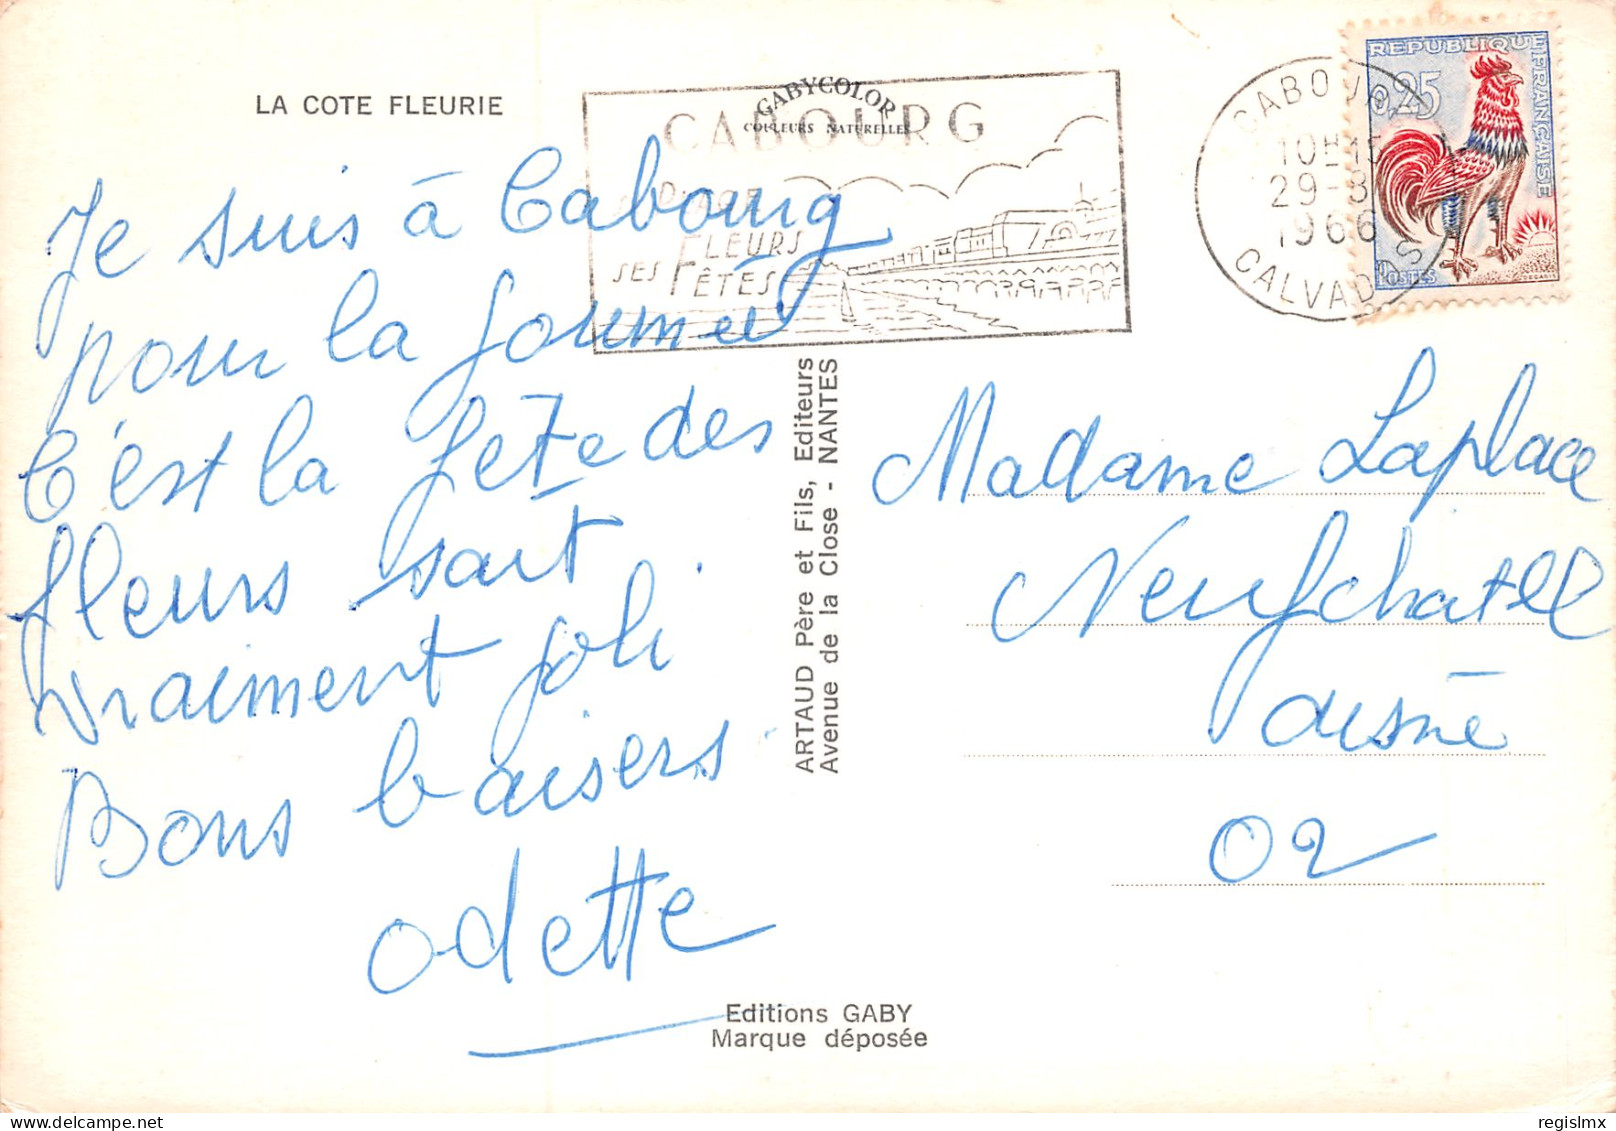 LA COTE FLEURIE
GABYCOLOR
COULEURS NATURELLES
CABOURG
PLAGE
FLEURS
SES FÊTES
CABOURG
10H15
29-8
1966
CALVADOS
REPUBLIQUE FRANÇAISE
0,25
POSTES
Je suis à Cabourg
pour la journée
C'est la fête des
fleurs sait
vraiment joli.
Bons baisers
Odette
ARTAUD Père et Fils, Editeurs
Avenue de la Close - NANTES
Madame Laplace
Neufchatel
aisne
02
Editions GABY
Marque déposée
regislmx